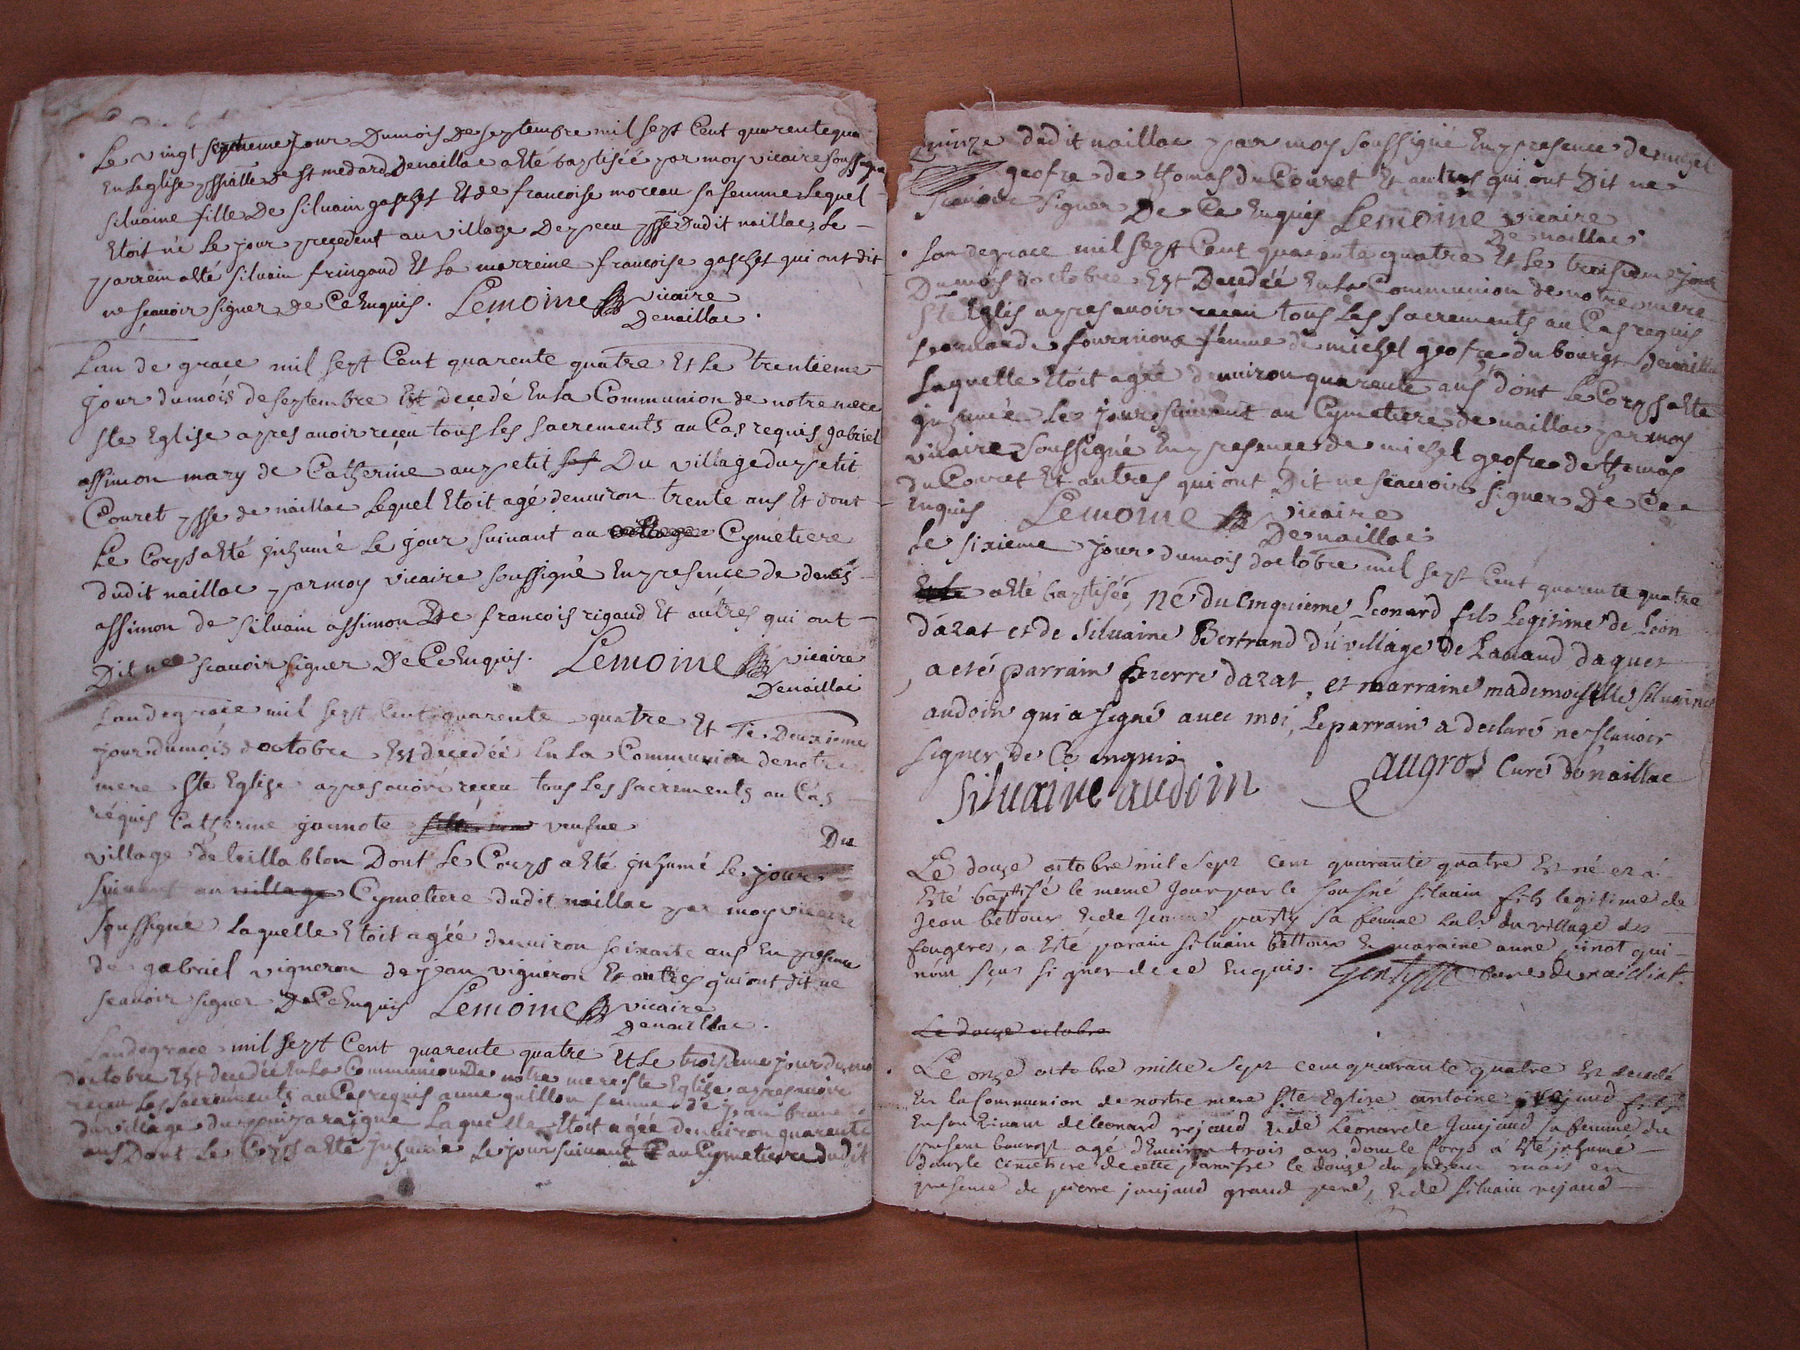 Le vingt septieme jour Dumois De septembre mil sept Cent quarente qua
En Leglise De St medard Denaillac a Eté baptisée par moy vicaire
silvaine fille De silvain gaschet Et de francoise moreau sa femme Lequel
Etoit né Le jour precedent au village De Dudit naillac, Le
parrein a Eté silvain fringaud Et La marreine francoise gaschet qui ont dit
ne scavoir signer De Ce Enquis. Lemoine vicaire
Denaillac.
Lan de grace mil sept Cent quarente quatre Et Le trentieme
jour dumois de septembre Est decedé En La Communion de notre mere
ste Eglise apres avoir receu tous Les sacrements au Cas requis gabriel
assimon mary de Catherine aupetit Du village du petit
Couret psse de naillac Lequel Etoit agé denviron trente ans Et dont
Le Corps a Eté jnhumé Le jour suivant au Cymetiere
dudit naillac par moy vicaire soussigné En presence de denis
assimon de silvain assimon De francois rigaud Et autres qui ont
Dit ne scavoir signer De Ce Enquis. Lemoine vicaire
Denaillac
Lan de grace mil sept Cent quarente quatre Et Le Deuxieme
jour dumois doctobre Est decedée En La Communion de notre
mere ste Eglise apres avoir receu tous Les sacrements au Cas
requis Catherine jannote veufue
Du
village de Dont Le Corps a Eté jnhumé Le jour
suivant au village Cymetiere dudit naillac par moy vicaire
soussigné Laquelle Etoit agéé denviron soixante ans En presence
de gabriel vigneron de jean vigneron Et autres qui ont dit ne
scavoir signer De Ce Enquis Lemoine vicaire
Denaillac.
Lan de grace mil sept Cent quarente quatre Et Le troisieme jour dumois
doctobre Est decedée En La Communion De notre mere ste Eglise apres avoir
receu Les sacrements au Cas requis anne femme de jean
du village du Laquelle Etoit agéé denviron quarente
ans Dont Le Corps a Eté jnhumée Le jour suivant au Cymetiere dudit
dudit naillac par moy soussigné En presence de michel
geofre de thomas du Couret Et autres qui ont Dit ne
scavoir signer De Ce Enquis Lemoine vicaire
De naillac
Lan de grace mil sept Cent quarente quatre Et Le troisieme jour
Dumois doctobre Est Decedée En La Communion de notre mere
ste Eglis apres avoir receu tous Les sacrements au Cas requis
femme de michel geofre du bourgt Denaillac
Laquelle Etoit agée denviron quarente ans dont Le Corps a Eté
jnhumée Le jour suivant au Cymetiere de naillac par moy
vicaire soussigné En presence de michel geofre de thomas
du Couret Et autres qui ont Dit ne scavoir signer De Ce
Enquis Lemoine vicaire
De naillac
Le sixieme jour dumois doctobre mil sept Cent quarente quatre
a Eté baptisée, né du Cinquieme Leonard fils Legitime de Leon
dazat et de Silvaine Bertrand du village de Lamaud daquet
a eté parrain pierre dazat, et marraine mademoiselle silvaine
audoin qui a signé avec moi, Le parrain a declaré ne scavoir
signer de Ce anquis
silvaine audoin augros Curé de naillac
Le douze octobre mil sept cent quarante quatre est né et a
Eté baptisé le meme jour par le sousné silvain fils legitime de
jean bettoux et de sa femme du village des
fougeres, a esté parain silvain bettoux et maraine anne qui
nom sçus signer de ce Enquis. Curé de nailliat.
Le douze octobre
Le onze octobre mille sept cent quarante quatre est decedé
En la Communion de nostre mere Ste Eglise antoine rejaud fils
de leonard rejaud et de leonarde jaujaud sa femme du
present bourgt agé d'Environ trois ans donc le Corps a Eté jnhumé
dans le cimetiere de cette parroisse le douze du present mois en
presence de pierre jaujaud grand pere, et de silvain rejaud